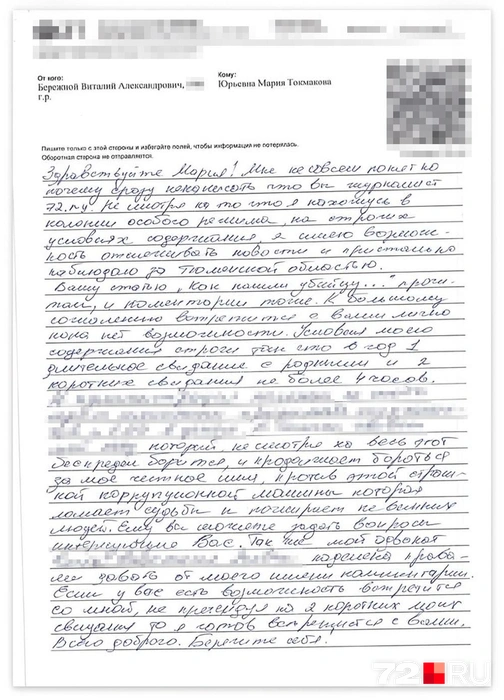 От кого:
Бережной Виталий Александрович,
г.р.
Кому:
Юрьевна Мария Токмакова
Пишите только с этой стороны и избегайте полей, чтобы информация не потерялась.
Оборотная сторона не отправляется.
Здравствуйте Мария! Мне не совсем понятно
почему сразу ненаписать что вы журналист
72.ru. Не смотря на то что я нахожусь в
колонии особого режима, на строгих
условиях содержания я имею возмож-
ность отслеживать новости и пристально
наблюдаю за Тюменской областью.
Вашу статью „Как нашли убийцу..." прочи-
тал, и коментарии тоже. К большому
сожелению встретится с вами лично
пока нет возможности. Условия моего
содержания строги так что в год 1
длительное свидание с родными и 2
коротких свидания не более 4 часов.
который, не смотря на весь этот
беспредел борится, и продолжает бороться
за моё честное имя, против этой страш-
ной коррупционной машины которая
ломает судьбы и пожирает не винных
людей. Ему вы можете задать вопросы
интерующие Вас. Так же мой адвокат
наделена права-
ми давать от моего имени комментарии.
Если у вас есть возможность встретится
со мной, не претендуя на 2 коротких моих
свидания то я готов встретится с вами.
Всего доброго. Берегите себя.
72.RU